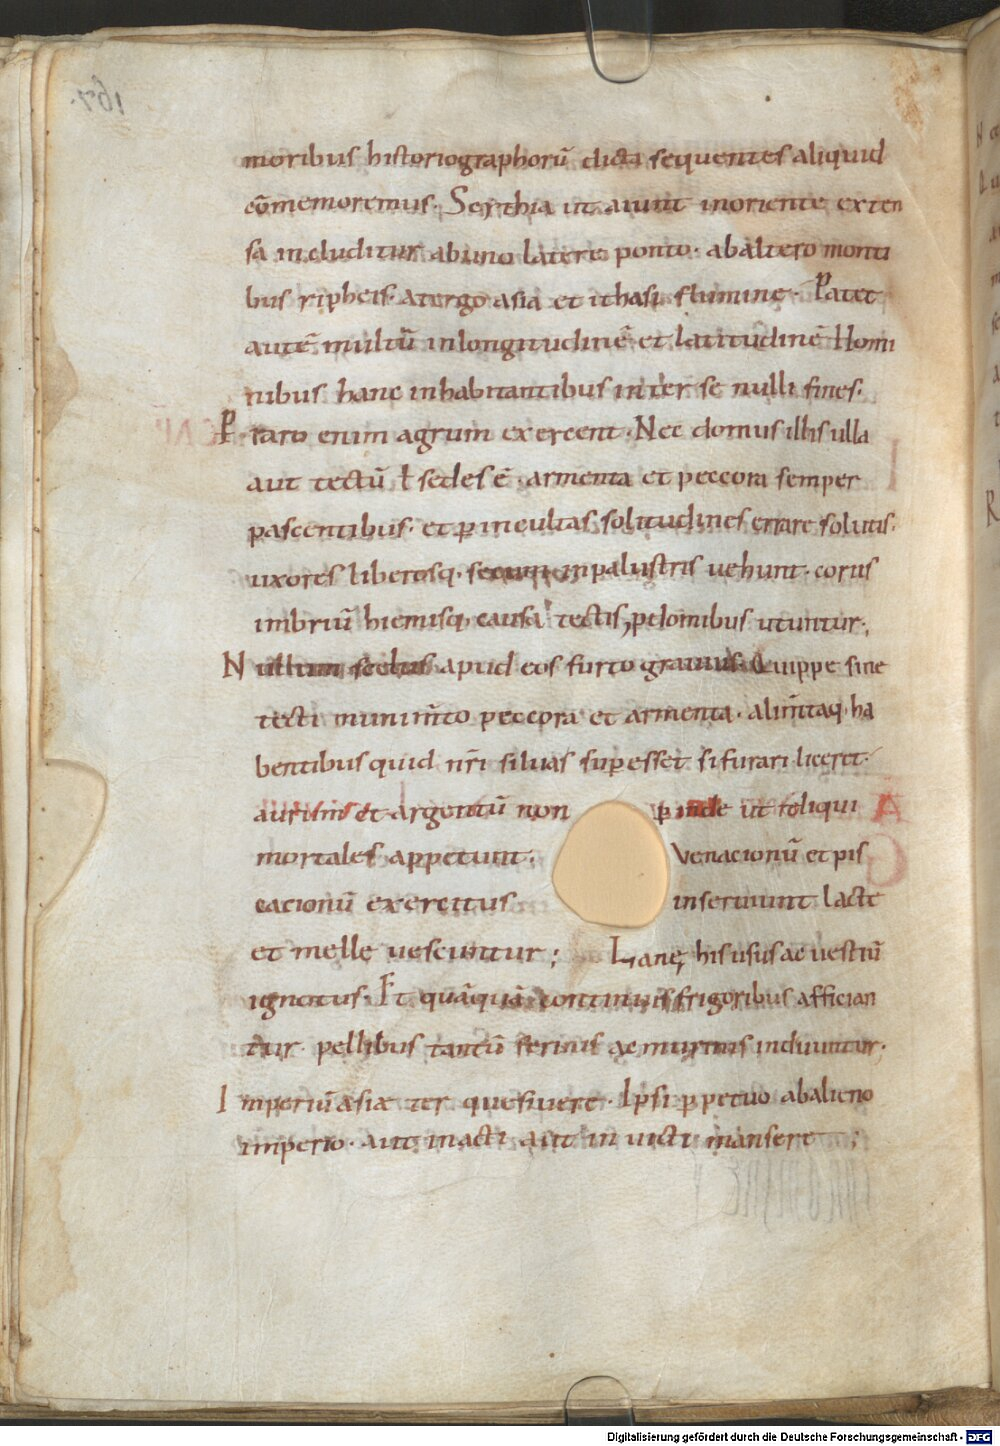 moribus historiographorū dicta sequentes aliquid
cōmemoremus. Scythia ut aiunt inoriente exten
sa includitur abuno latere ponto. abaltero monti
bus ripheis. atergo asia et ithasi flumine. Patet
autē multū inlongitudinē et latitudinē Homi
nibus hanc inhabitantibus inter se nulli fines.
P raro enim agrum exercent. Nec domus illis ulla
aut tectū ł sedes ē. armenta et peccora semper
pascentibus. et p incultas solitudines errare solutis.
uxores liberosq. secum inpalustris uehunt. corus
imbriū hiemisq. causa tectis, pelomibus utuntur;
Nullum scelus apud eos furto grauius. Quippe sine
tecti munim̄to peccora et armenta. alim̄taq. ha
bentibus quid nr̄i siluas supesset si furari liceret.
aurum et argentū non pinde ut reliqui
mortales appetunt. Venacionū et pis
cacionū exercitus inseruiunt lacte
et melle uescuntur; Lanę his usus ac uestiū
ignotus. Et quāquā continuis frigoribus affician
tur. pellibus tantū ferinis ac murinis induuntur.
Imperiū asiae ter quesiuere. Ipsi ppetuo abalieno
imperio. aut inacti aut inuicti mansere;
167.
Digitalisierung gefördert durch die Deutsche Forschungsgemeinschaft - DFG